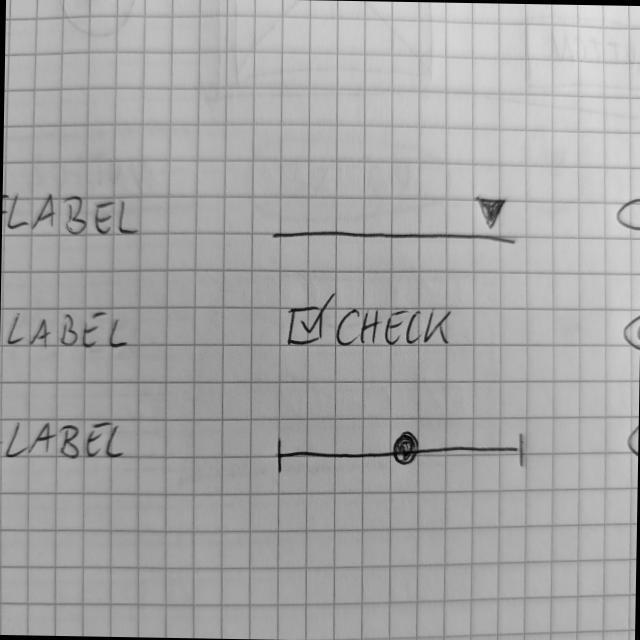 LABEL
LABEL CHECK
LABEL